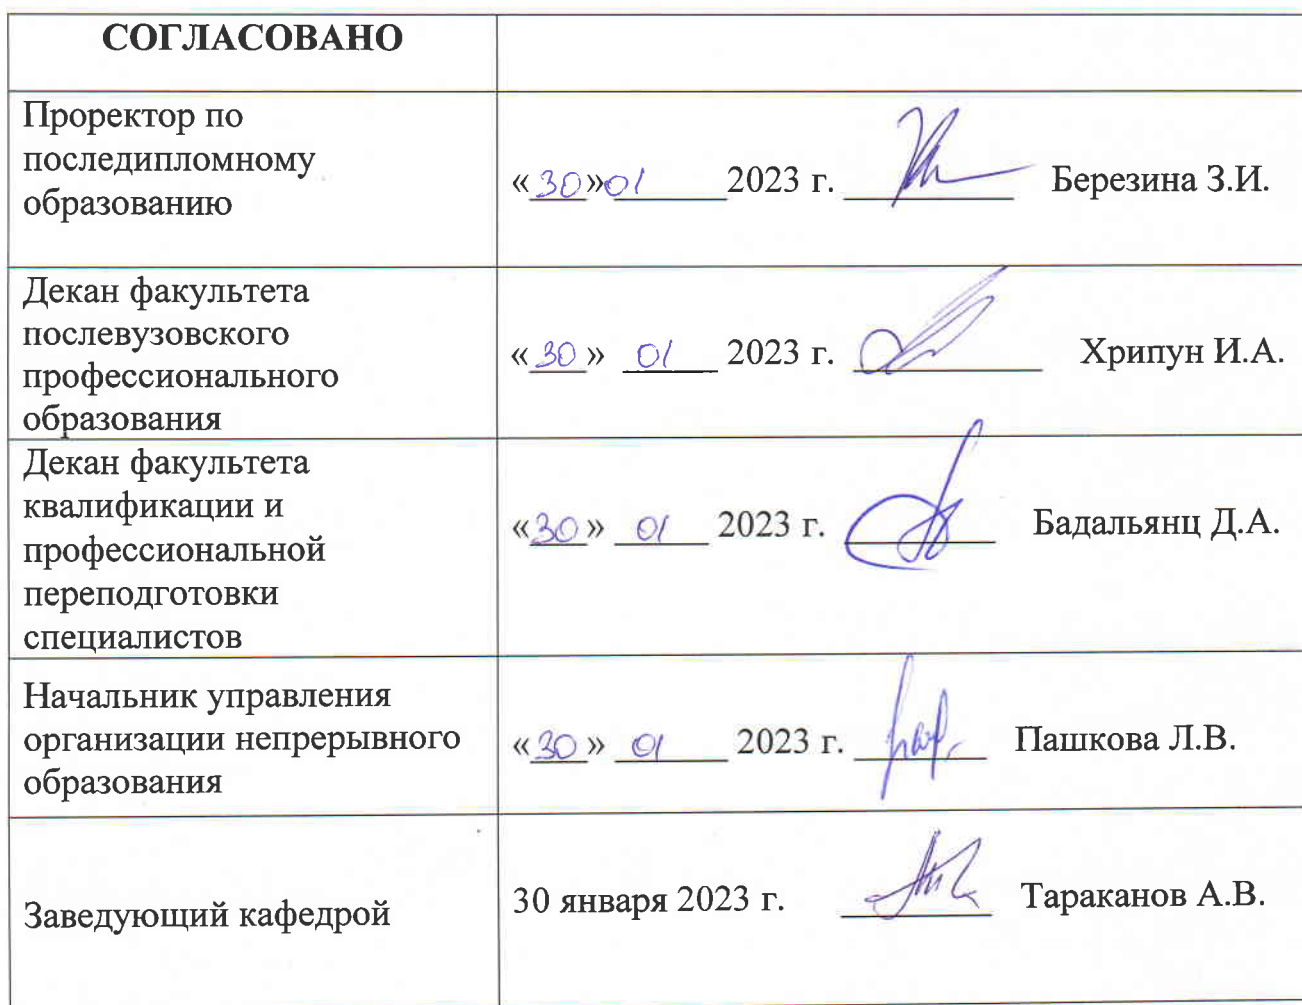 СОГЛАСОВАНО
Проректор по
последипломному
образованию
«30»01 2023 г. Березина З.И.
Декан факультета
послевузовского
профессионального
образования
«30» 01 2023 г. Хрипун И.А.
Декан факультета
квалификации и
профессиональной
переподготовки
специалистов
«30» 01 2023 г. Бадальянц Д.А.
Начальник управления
организации непрерывного
образования
«30» 01 2023 г. Пашкова Л.В.
Заведующий кафедрой
30 января 2023 г. Тараканов А.В.